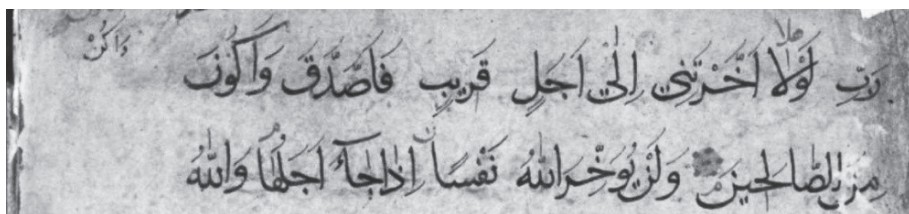 وَاكُنْ
رَبِّ لَوْلَاۤ اَخَّرْتَنِي اِلٰي اَجَلٍ قَرِيبٍ فَاَصَّدَّقَ وَاَكُونَ
مِنَ الصَّالِحِينَ وَلَنْ يُوَخِّرَ اللّٰهُ نَفْسًا اِذَا جَآءَ اَجَلُهَا وَاللّٰهُ